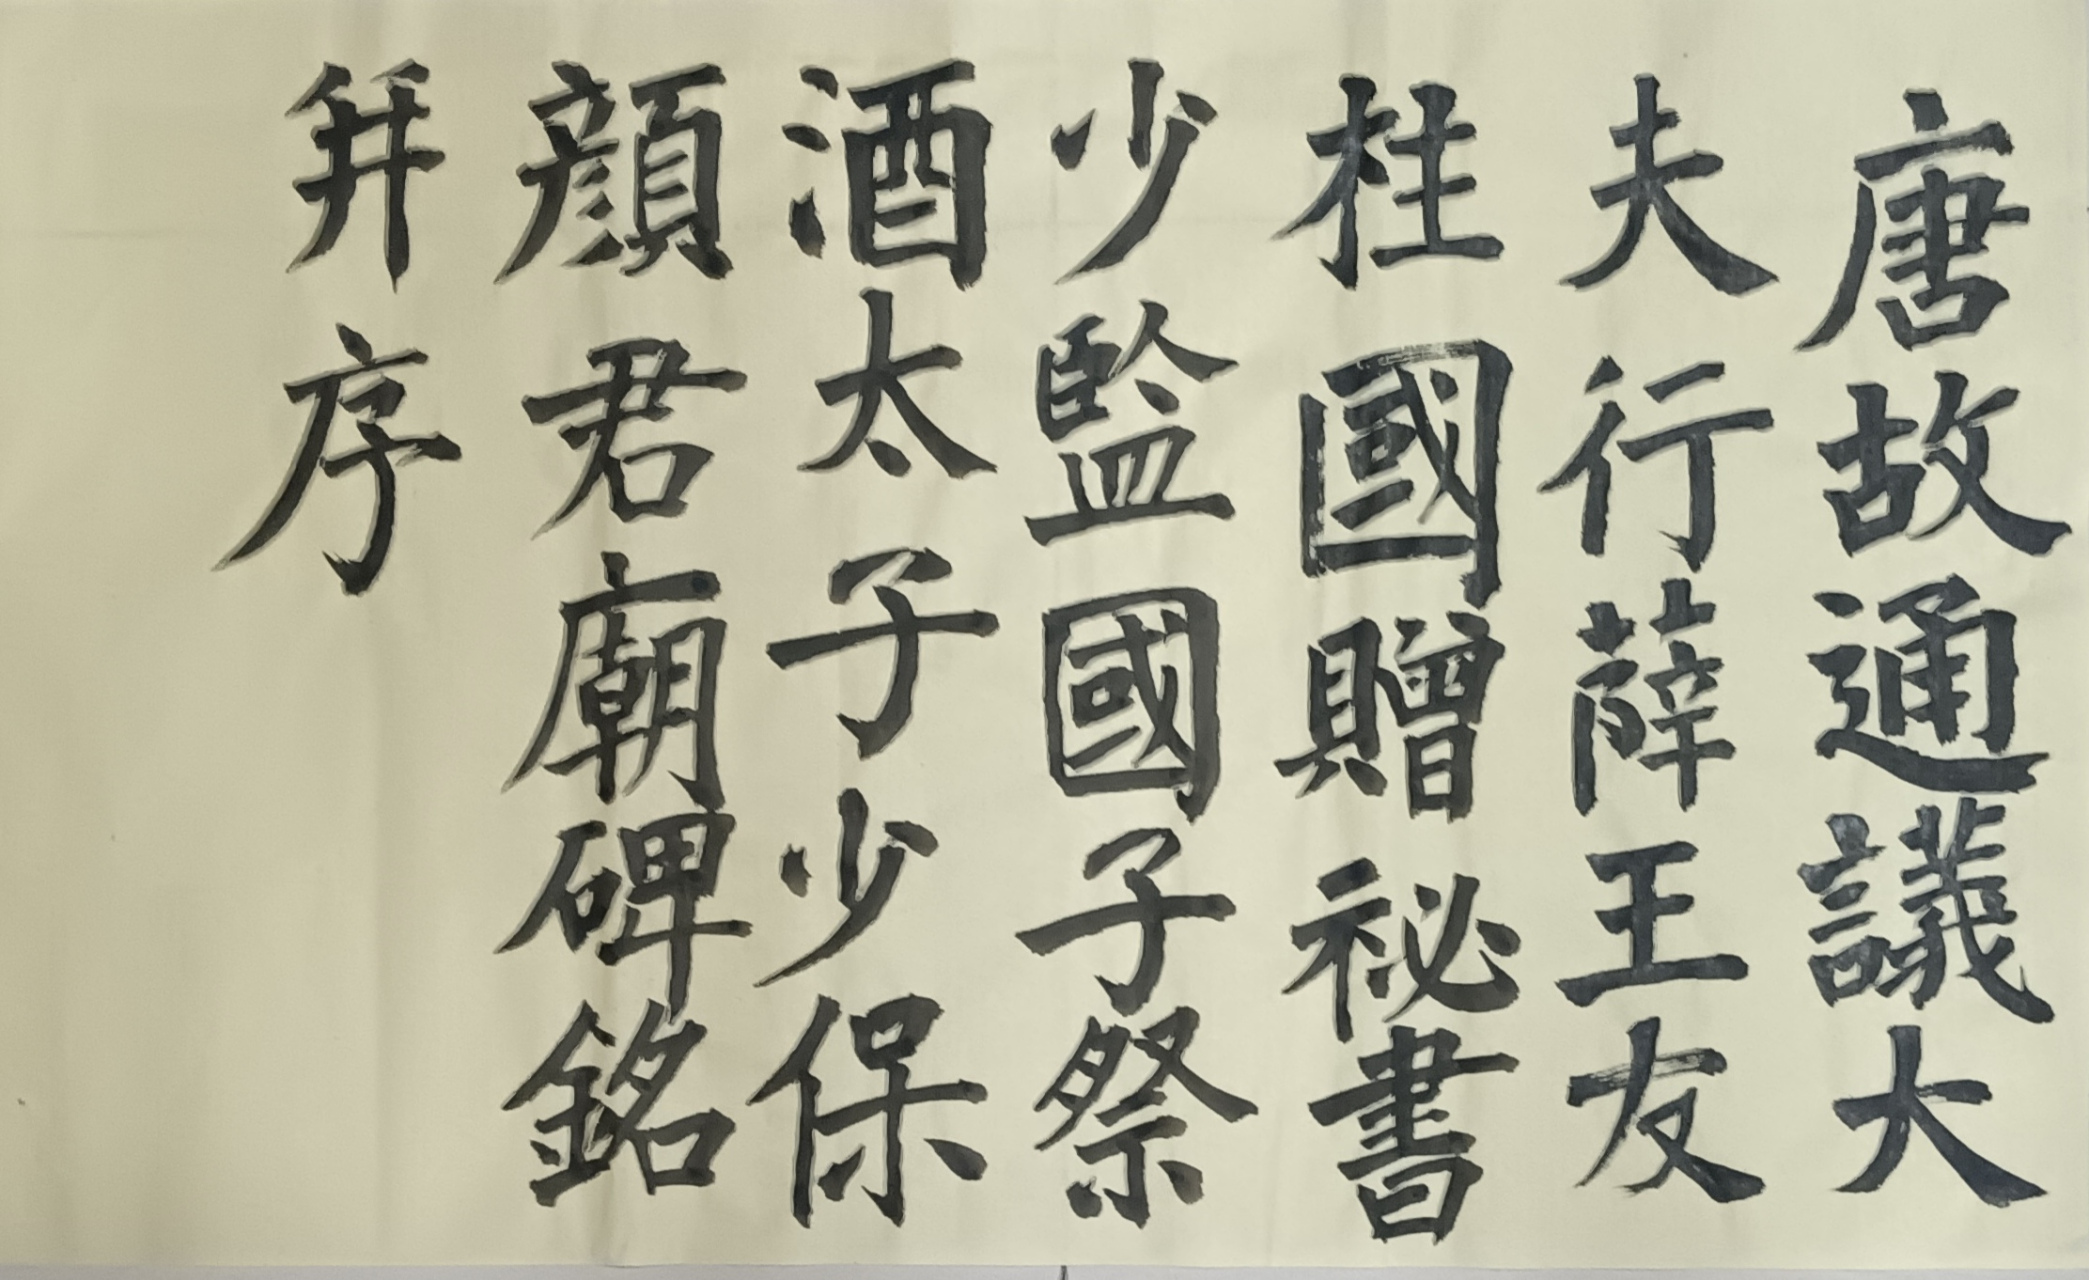 唐故通議大
夫行薛王友
柱國贈祕書
少監國子祭
酒太子少保
顏君廟碑銘
并序